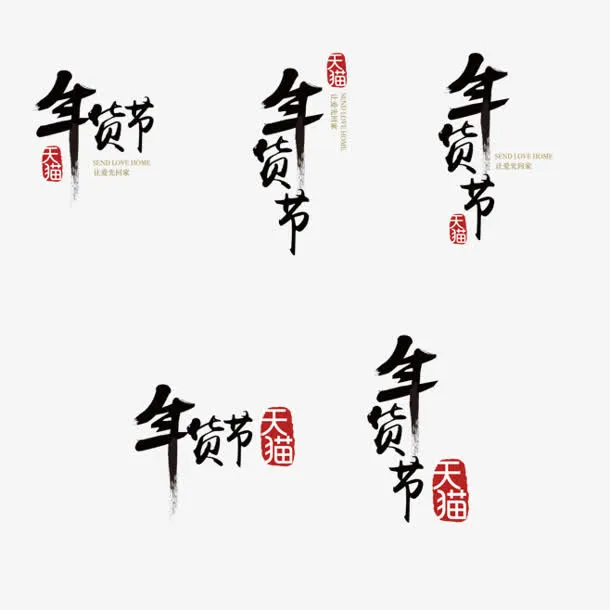 年货节
天猫
SEND LOVE HOME
让爱先回家
天猫
年货节
SEND LOVE HOME
让爱先回家
年货节
SEND LOVE HOME
让爱先回家
天猫
年货节
天猫
年货节
天猫